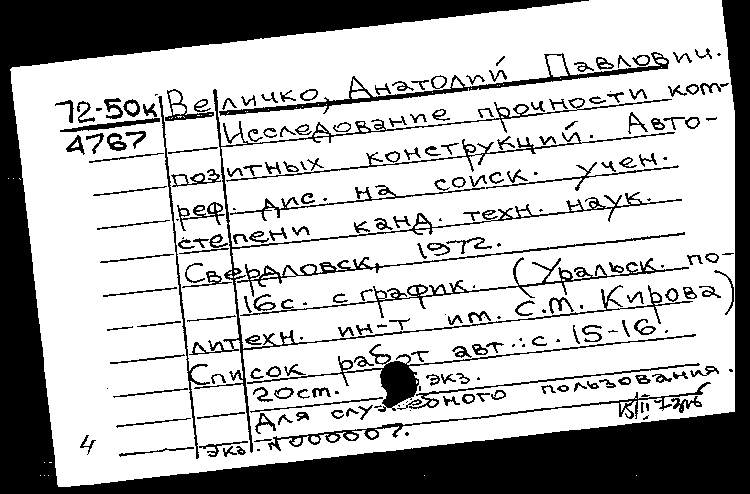 72-50к Величко, Анатолий Павлович.
4767 Исследование прочности ком-
позитных конструкций. Авто-
реф. дис. на соиск. учен.
степени канд. техн. наук.
Свердловск, 1972.
16с. с график. (Уральск. по-
литехн. ин-т им. С.М. Кирова)
Список работ авт.: с. 15-16.
20см. экз.
Для служебного пользования.
Экз. N 000007.
4